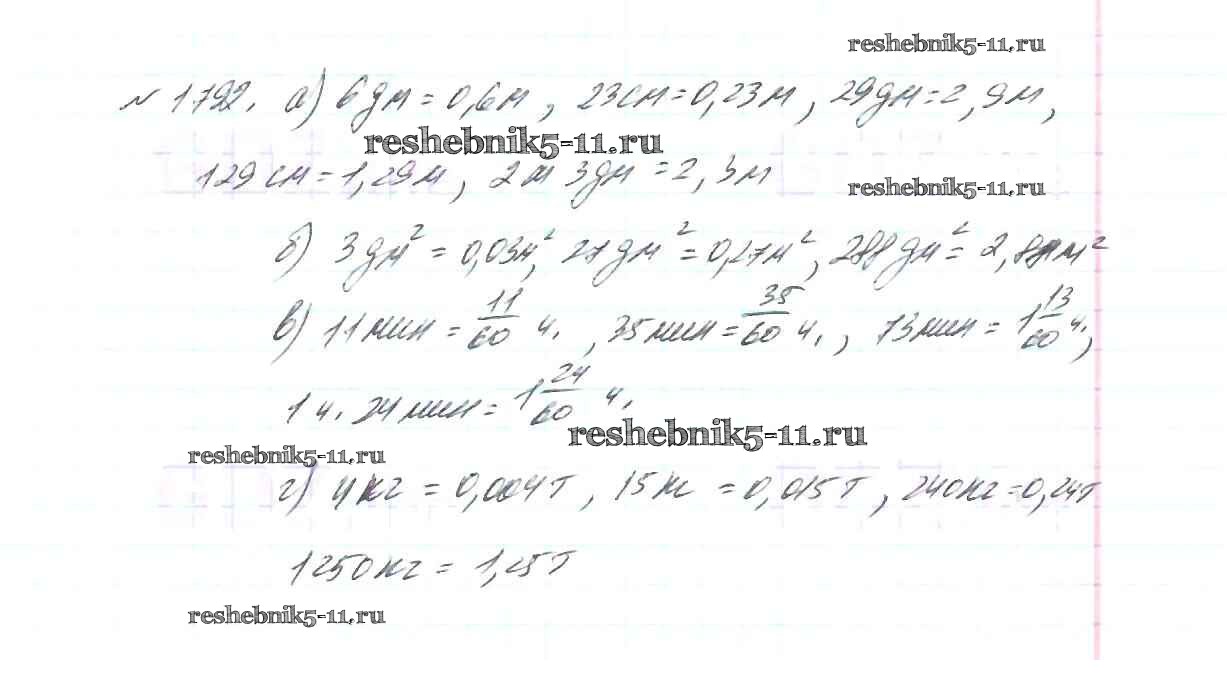 reshebnik5-11.ru
№ 1792. а) 6 дм = 0,6 м, 23 см = 0,23 м, 29 дм = 2,9 м,
reshebnik5-11.ru
129 см = 1,29 м, 2 м 3 дм = 2,3 м
reshebnik5-11.ru
б) 3 дм² = 0,03 м², 27 дм² = 0,27 м², 288 дм² = 2,88 м²
в) 11 мин = 11/60 ч., 35 мин = 35/60 ч., 73 мин = 1 13/60 ч.,
1 ч. 24 мин = 1 24/60 ч.
reshebnik5-11.ru
reshebnik5-11.ru
г) 4 кг = 0,004 т, 15 кг = 0,015 т, 240 кг = 0,24 т
1250 кг = 1,25 т
reshebnik5-11.ru